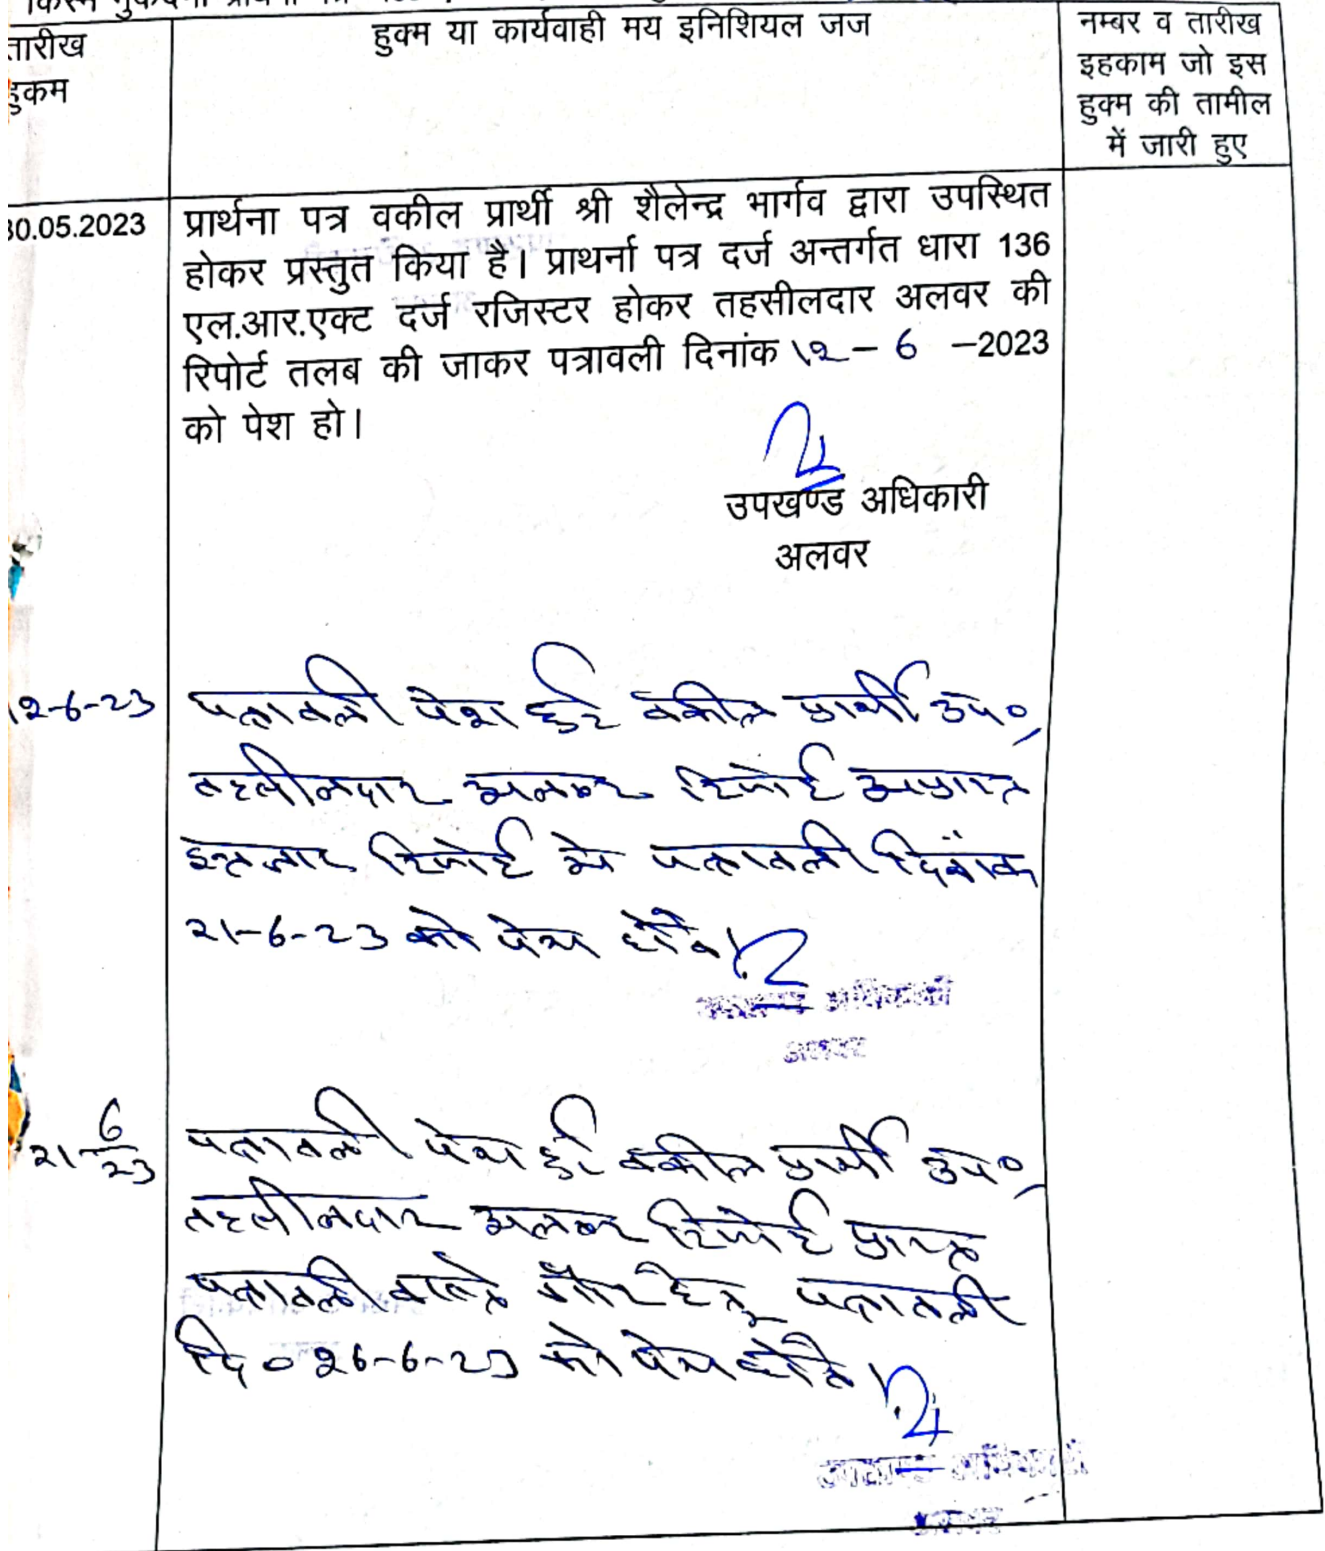 तारीख
हुकम
हुक्म या कार्यवाही मय इनिशियल जज
नम्बर व तारीख
इहकाम जो इस
हुक्म की तामील
में जारी हुए
30.05.2023
प्रार्थना पत्र वकील प्रार्थी श्री शैलेन्द्र भार्गव द्वारा उपस्थित
होकर प्रस्तुत किया है। प्राथर्ना पत्र दर्ज अन्तर्गत धारा 136
एल.आर.एक्ट दर्ज रजिस्टर होकर तहसीलदार अलवर की
रिपोर्ट तलब की जाकर पत्रावली दिनांक १२ – 6 –2023
को पेश हो।
उपखण्ड अधिकारी
अलवर
१२-6-२३
पत्रावली पेश हुई वकील प्रार्थी उप०
तहसीलदार अलवर रिपोर्ट अप्राप्त
इन्तजार रिपोर्ट मे पत्रावली दिनांक
२१-6-२३ को पेश होवे।
उपखण्ड अधिकारी
अलवर
२१-6-23
पत्रावली पेश हुई वकील प्रार्थी उप०
तहसीलदार अलवर रिपोर्ट प्राप्त
पत्रावली वास्ते गौर हेतु पत्रावली
दि० २6-6-२३ को पेश होवे।
उपखण्ड अधिकारी
अलवर